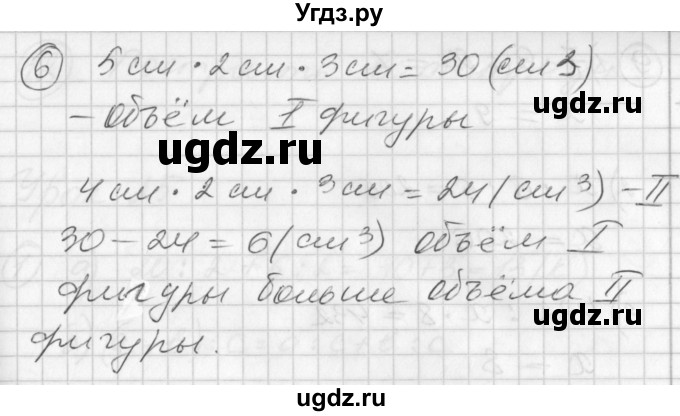 Угдз.ру
6 5 см · 2 см · 3 см = 30 (см3)
– объём I фигуры
ugdz.ru
ugdz.ru
4 см · 2 см · 3 см = 24 (см³) – II
30 – 24 = 6 (см³) объём I
фигуры больше объёма II
ugdz.ru
ugdz.ru
фигуры.
ugdz.ru